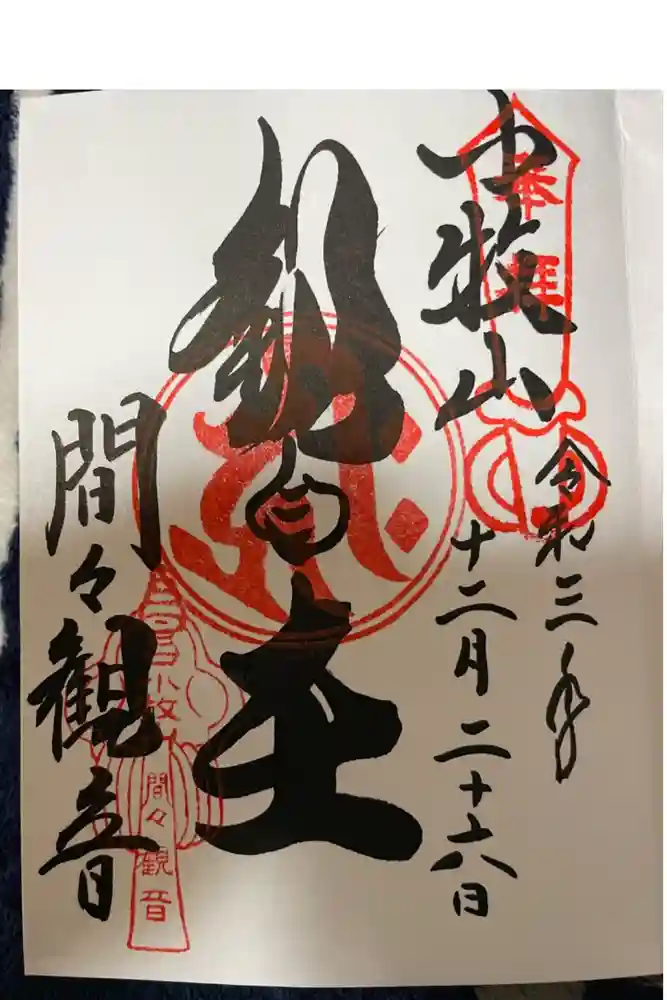 奉拝
小牧山
令和三年
十二月二十六日
観自在
間々観音
間々観音